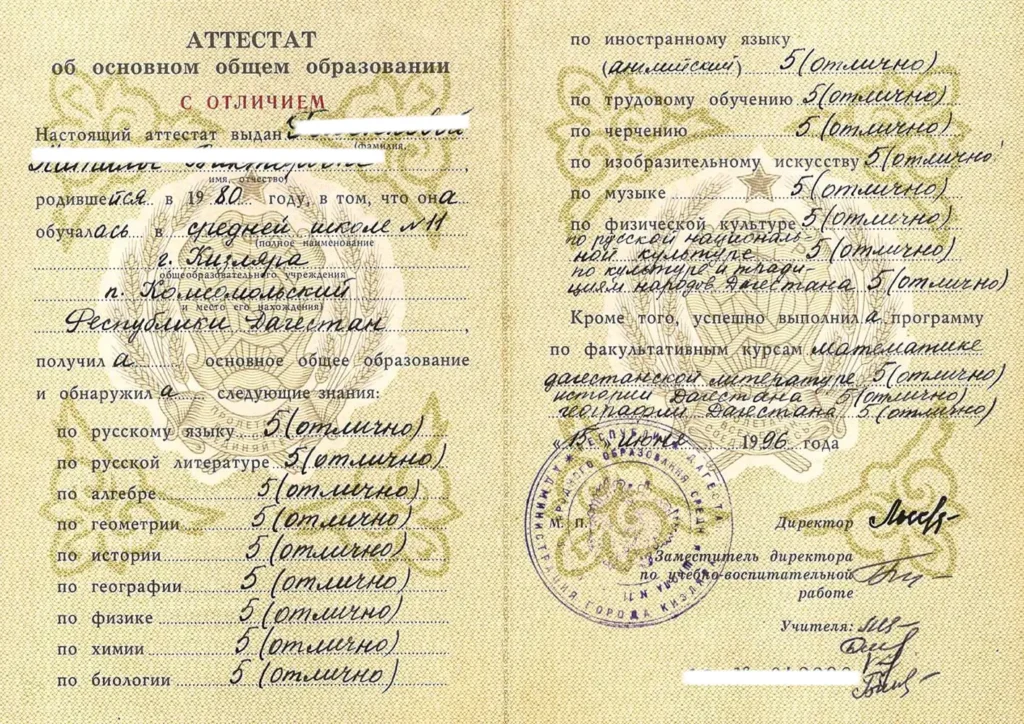 АТТЕСТАТ
об основном общем образовании
С ОТЛИЧИЕМ
Настоящий аттестат выдан
(фамилия,
имя, отчество)
родившейся в 1980 году, в том, что она
обучалась в средней школе №11
(полное наименование
г. Кизляра
общеобразовательного учреждения
п. Комсомольский
и место его нахождения)
Республики Дагестан,
получила основное общее образование
и обнаружила следующие знания:
по русскому языку 5 (отлично)
по русской литературе 5 (отлично)
по алгебре 5 (отлично)
по геометрии 5 (отлично)
по истории 5 (отлично)
по географии 5 (отлично)
по физике 5 (отлично)
по химии 5 (отлично)
по биологии 5 (отлично)
по иностранному языку
(английский) 5 (отлично)
по трудовому обучению 5 (отлично)
по черчению 5 (отлично)
по изобразительному искусству 5 (отлично)
по музыке 5 (отлично)
по физической культуре 5 (отлично)
по русской националь-
ной культуре 5 (отлично)
по культуре и тради-
циям народов Дагестана 5 (отлично)
Кроме того, успешно выполнила программу
по факультативным курсам математике
дагестанской литературе 5 (отлично)
истории Дагестана 5 (отлично)
географии Дагестана 5 (отлично)
«15» июня 1996 года
М. П.
Директор
Заместитель директора
по учебно-воспитательной
работе
Учителя:
АДМИНИСТРАЦИЯ ГОРОДА КИЗЛЯРА